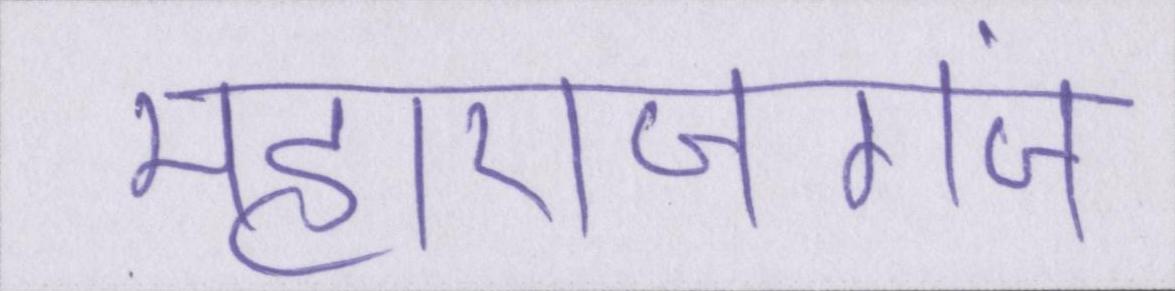 महाराजगंज